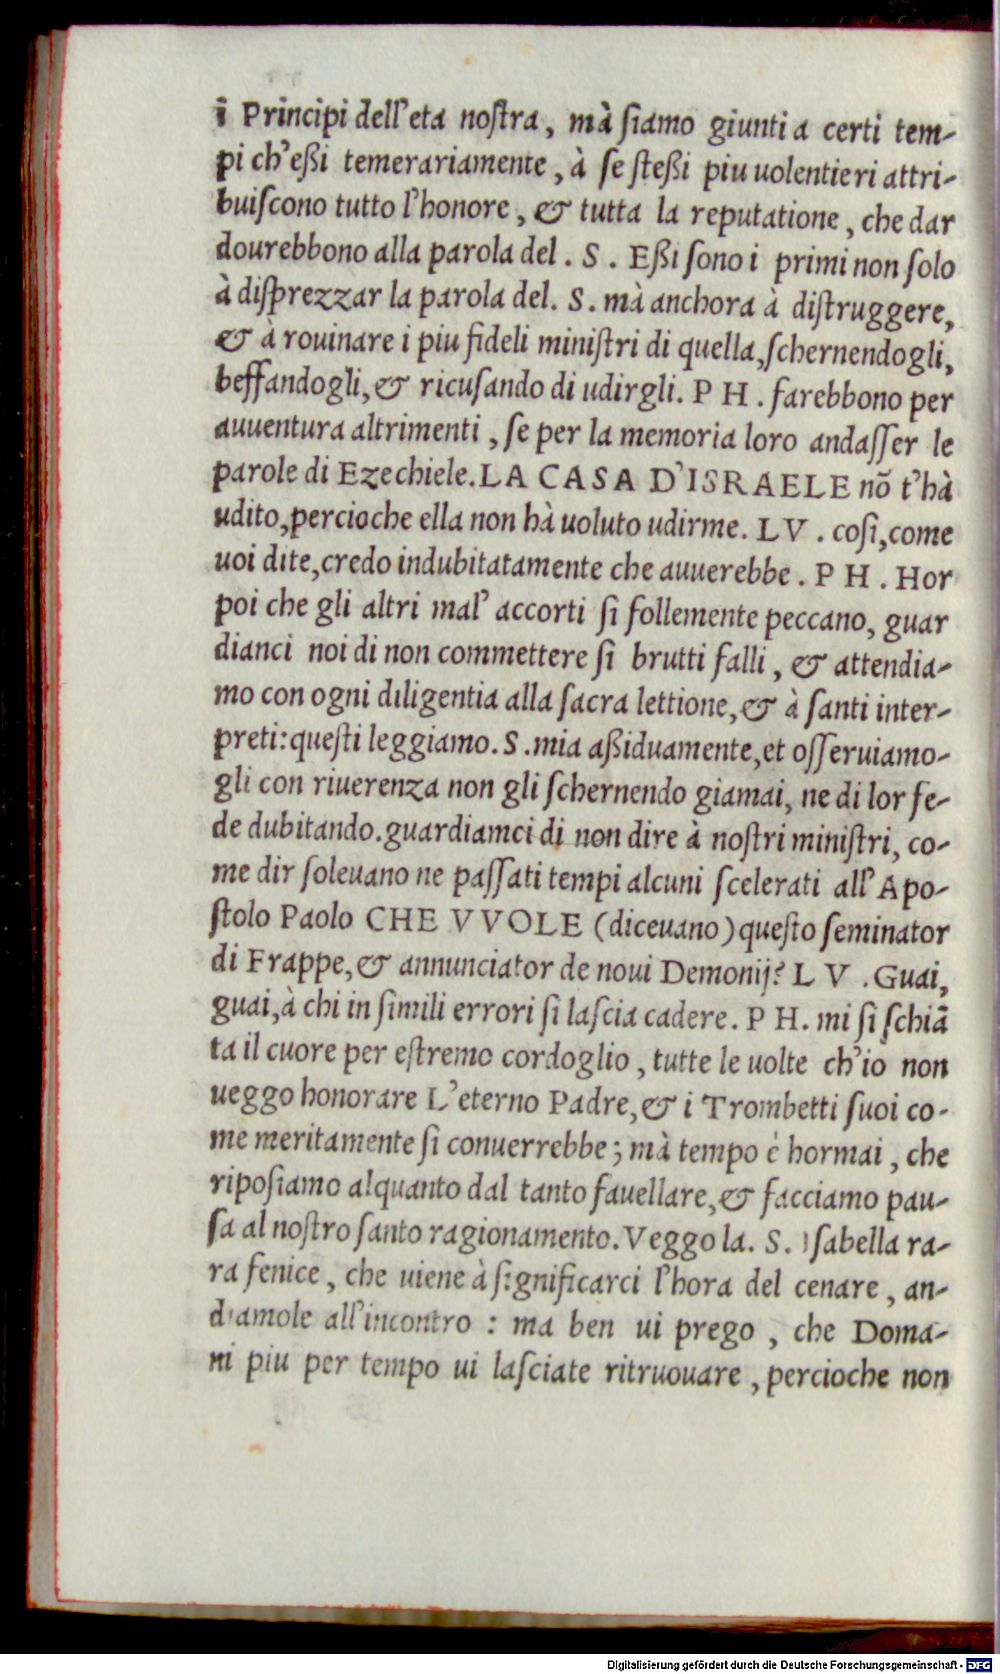 i Principi dell'eta noſtra, mà ſiamo giunti a certi tem-
pi ch'eßi temerariamente, à ſe ſteßi piu uolentieri attri-
buiſcono tutto l'honore, & tutta la reputatione, che dar
dourebbono alla parola del. S. Eßi ſono i primi non ſolo
à diſprezzar la parola del. S. mà anchora à diſtruggere,
& à rouinare i piu fideli miniſtri di quella, ſchernendogli,
beffandogli, & ricuſando di udirgli. P H. farebbono per
auuentura altrimenti, ſe per la memoria loro andaſſer le
parole di Ezechiele. LA CASA D'ISRAELE nõ t'hà
udito, percioche ella non hà uoluto udirme. L V. coſi, come
uoi dite, credo indubitatamente che auuerebbe. P H. Hor
poi che gli altri mal' accorti ſi follemente peccano, guar
dianci noi di non commettere ſi brutti falli, & attendia-
mo con ogni diligentia alla ſacra lettione, & à ſanti inter-
preti: queſti leggiamo. S. mia aßiduamente, et oſſeruiamo-
gli con riuerenza non gli ſchernendo giamai, ne di lor fe-
de dubitando. guardiamci di non dire à noſtri miniſtri, co-
me dir ſoleuano ne paſſati tempi alcuni ſcelerati all' Apo-
ſtolo Paolo CHE VVOLE (diceuano) queſto ſeminator
di Frappe, & annunciator de noui Demonij? L V. Guai,
guai, à chi in ſimili errori ſi laſcia cadere. P H. mi ſi ſchiã
ta il cuore per eſtremo cordoglio, tutte le uolte ch'io non
ueggo honorare L'eterno Padre, & i Trombetti ſuoi co-
me meritamente ſi conuerrebbe; mà tempo è hormai, che
ripoſiamo alquanto dal tanto fauellare, & facciamo pau-
ſa al noſtro ſanto ragionamento. Veggo la. S. Iſabella ra-
ra fenice, che uiene à ſignificarci l'hora del cenare, an-
diamole all'incontro: ma ben ui prego, che Doma-
ni piu per tempo ui laſciate ritruouare, percioche non
Digitalisierung gefördert durch die Deutsche Forschungsgemeinschaft - DFG